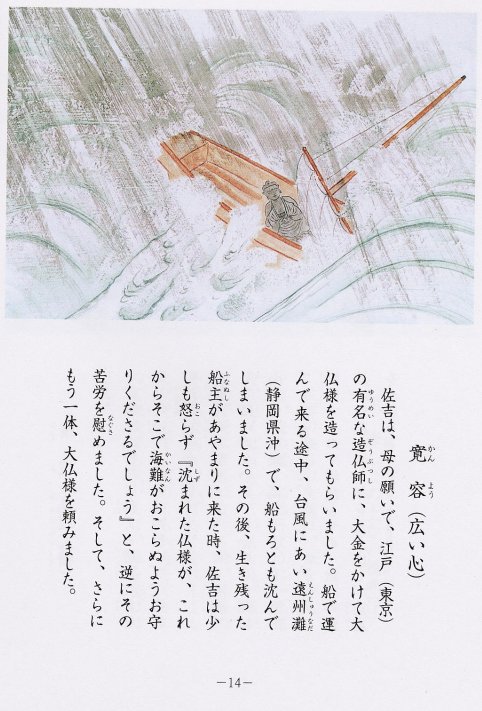 寛容(広い心)
かんよう
佐吉は、母の願いで、江戸(東京)
の有名な造仏師に、大金をかけて大
ゆうめい ぞうぶつし
仏様を造ってもらいました。船で運
んで来る途中、台風にあい遠州灘
えんしゅうなだ
(静岡県沖)で、船もろとも沈んで
しまいました。その後、生き残った
船主があやまりに来た時、佐吉は少
ふなぬし
しも怒らず『沈まれた仏様が、これ
おこ しず
からそこで海難がおこらぬようお守
かいなん
りくださるでしょう』と、逆にその
苦労を慰めました。そして、さらに
なぐさ
もう一体、大仏様を頼みました。
-14-